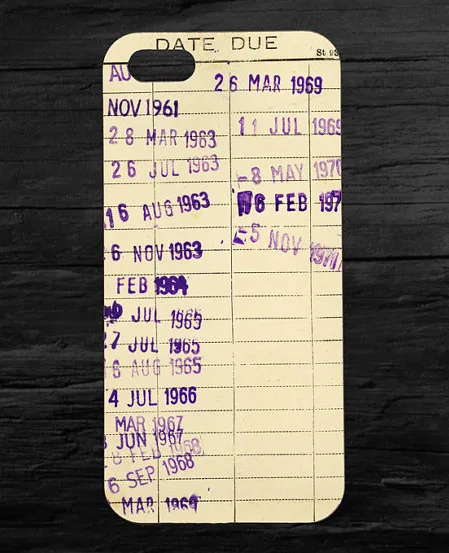 DATE DUE
AU
NOV 1961
28 MAR 1963
26 JUL 1963
16 AUG 1963
6 NOV 1963
FEB 1964
JUL 1965
27 JUL 1965
AUG 1965
4 JUL 1966
MAR 1967
JUN 1967
8 FEB 1968
6 SEP 1968
MAR 1969
26 MAR 1969
11 JUL 1969
-8 MAY 1970
FEB 197
-5 NOV 1970